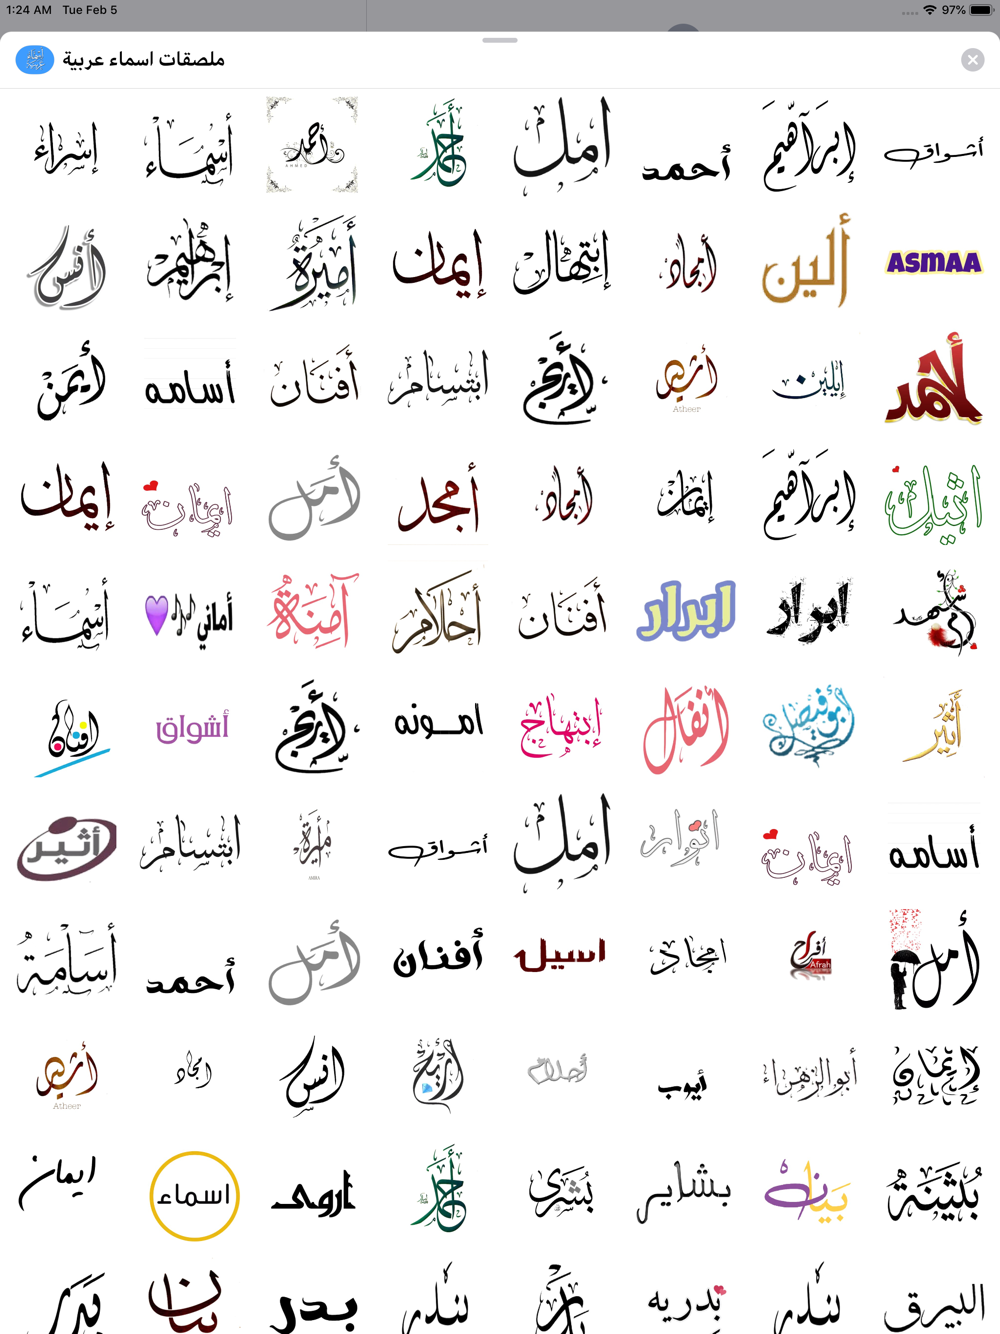 1:24 AM Tue Feb 5 97%
ملصقات اسماء عربية
أشواق إبراهيم أحمد امل أحمد أحمد AHMED أسماء إسراء
ASMAA ألين أمجاد إبتهال إيمان أميرة إبراهيم أنس
لأحمد إيلين أثير Atheer أريج ابتسام أفنان أسامه أيمن
اثيل إبراهيم إيمان أمجاد أمجد أمل ايمان إيمان
أم شهد ابرار ابرار أفنان أحلام آمنة أماني أسماء
أثير أبو فيصل أنفال إبتهاج امونه أريج أشواق افنان
أسامه ايمان انوار امل أشواق أميرة ابتسام أثير
أمل أفراح Afrah امجاد اسيل أفنان أمل أحمد أسامة
إيمان أبو الزهراء أيوب أحلام أريج انس امجاد أثير Atheer
بثينة بيان بشاير بشرى أحمد اروى اسماء ايمان
البيرق بندر بدريه بندر بدر بيان بندر